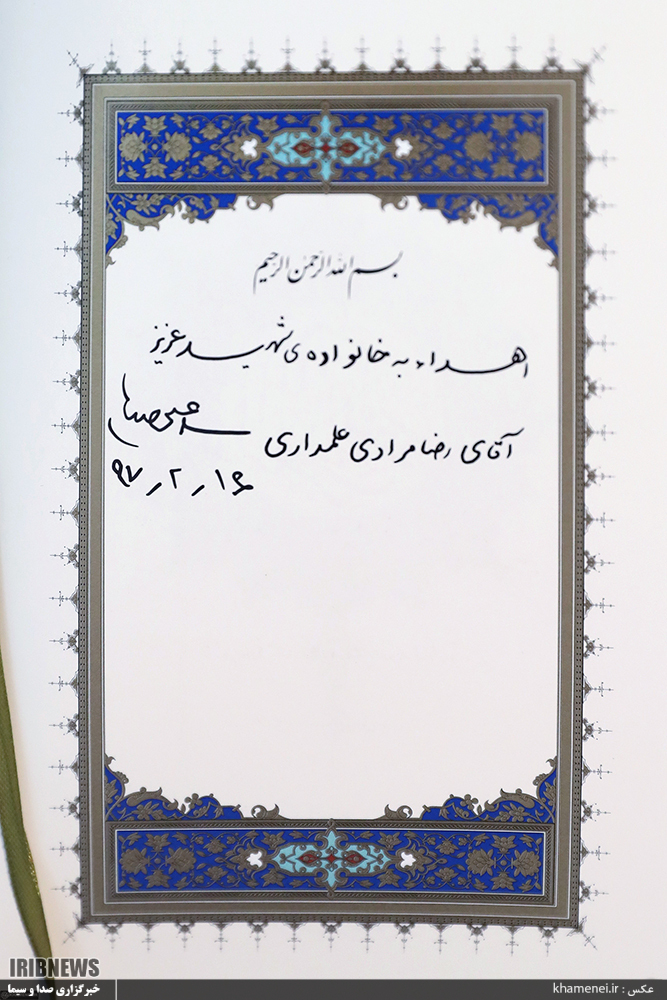 بسم الله الرحمن الرحیم
اهداء به خانواده‌ی شهید عزیز
آقای رضا مرادی علمداری
۹۷٫۲٫۱۶
IRIBNEWS
خبرگزاری صدا و سیما
عکس : khamenei.ir